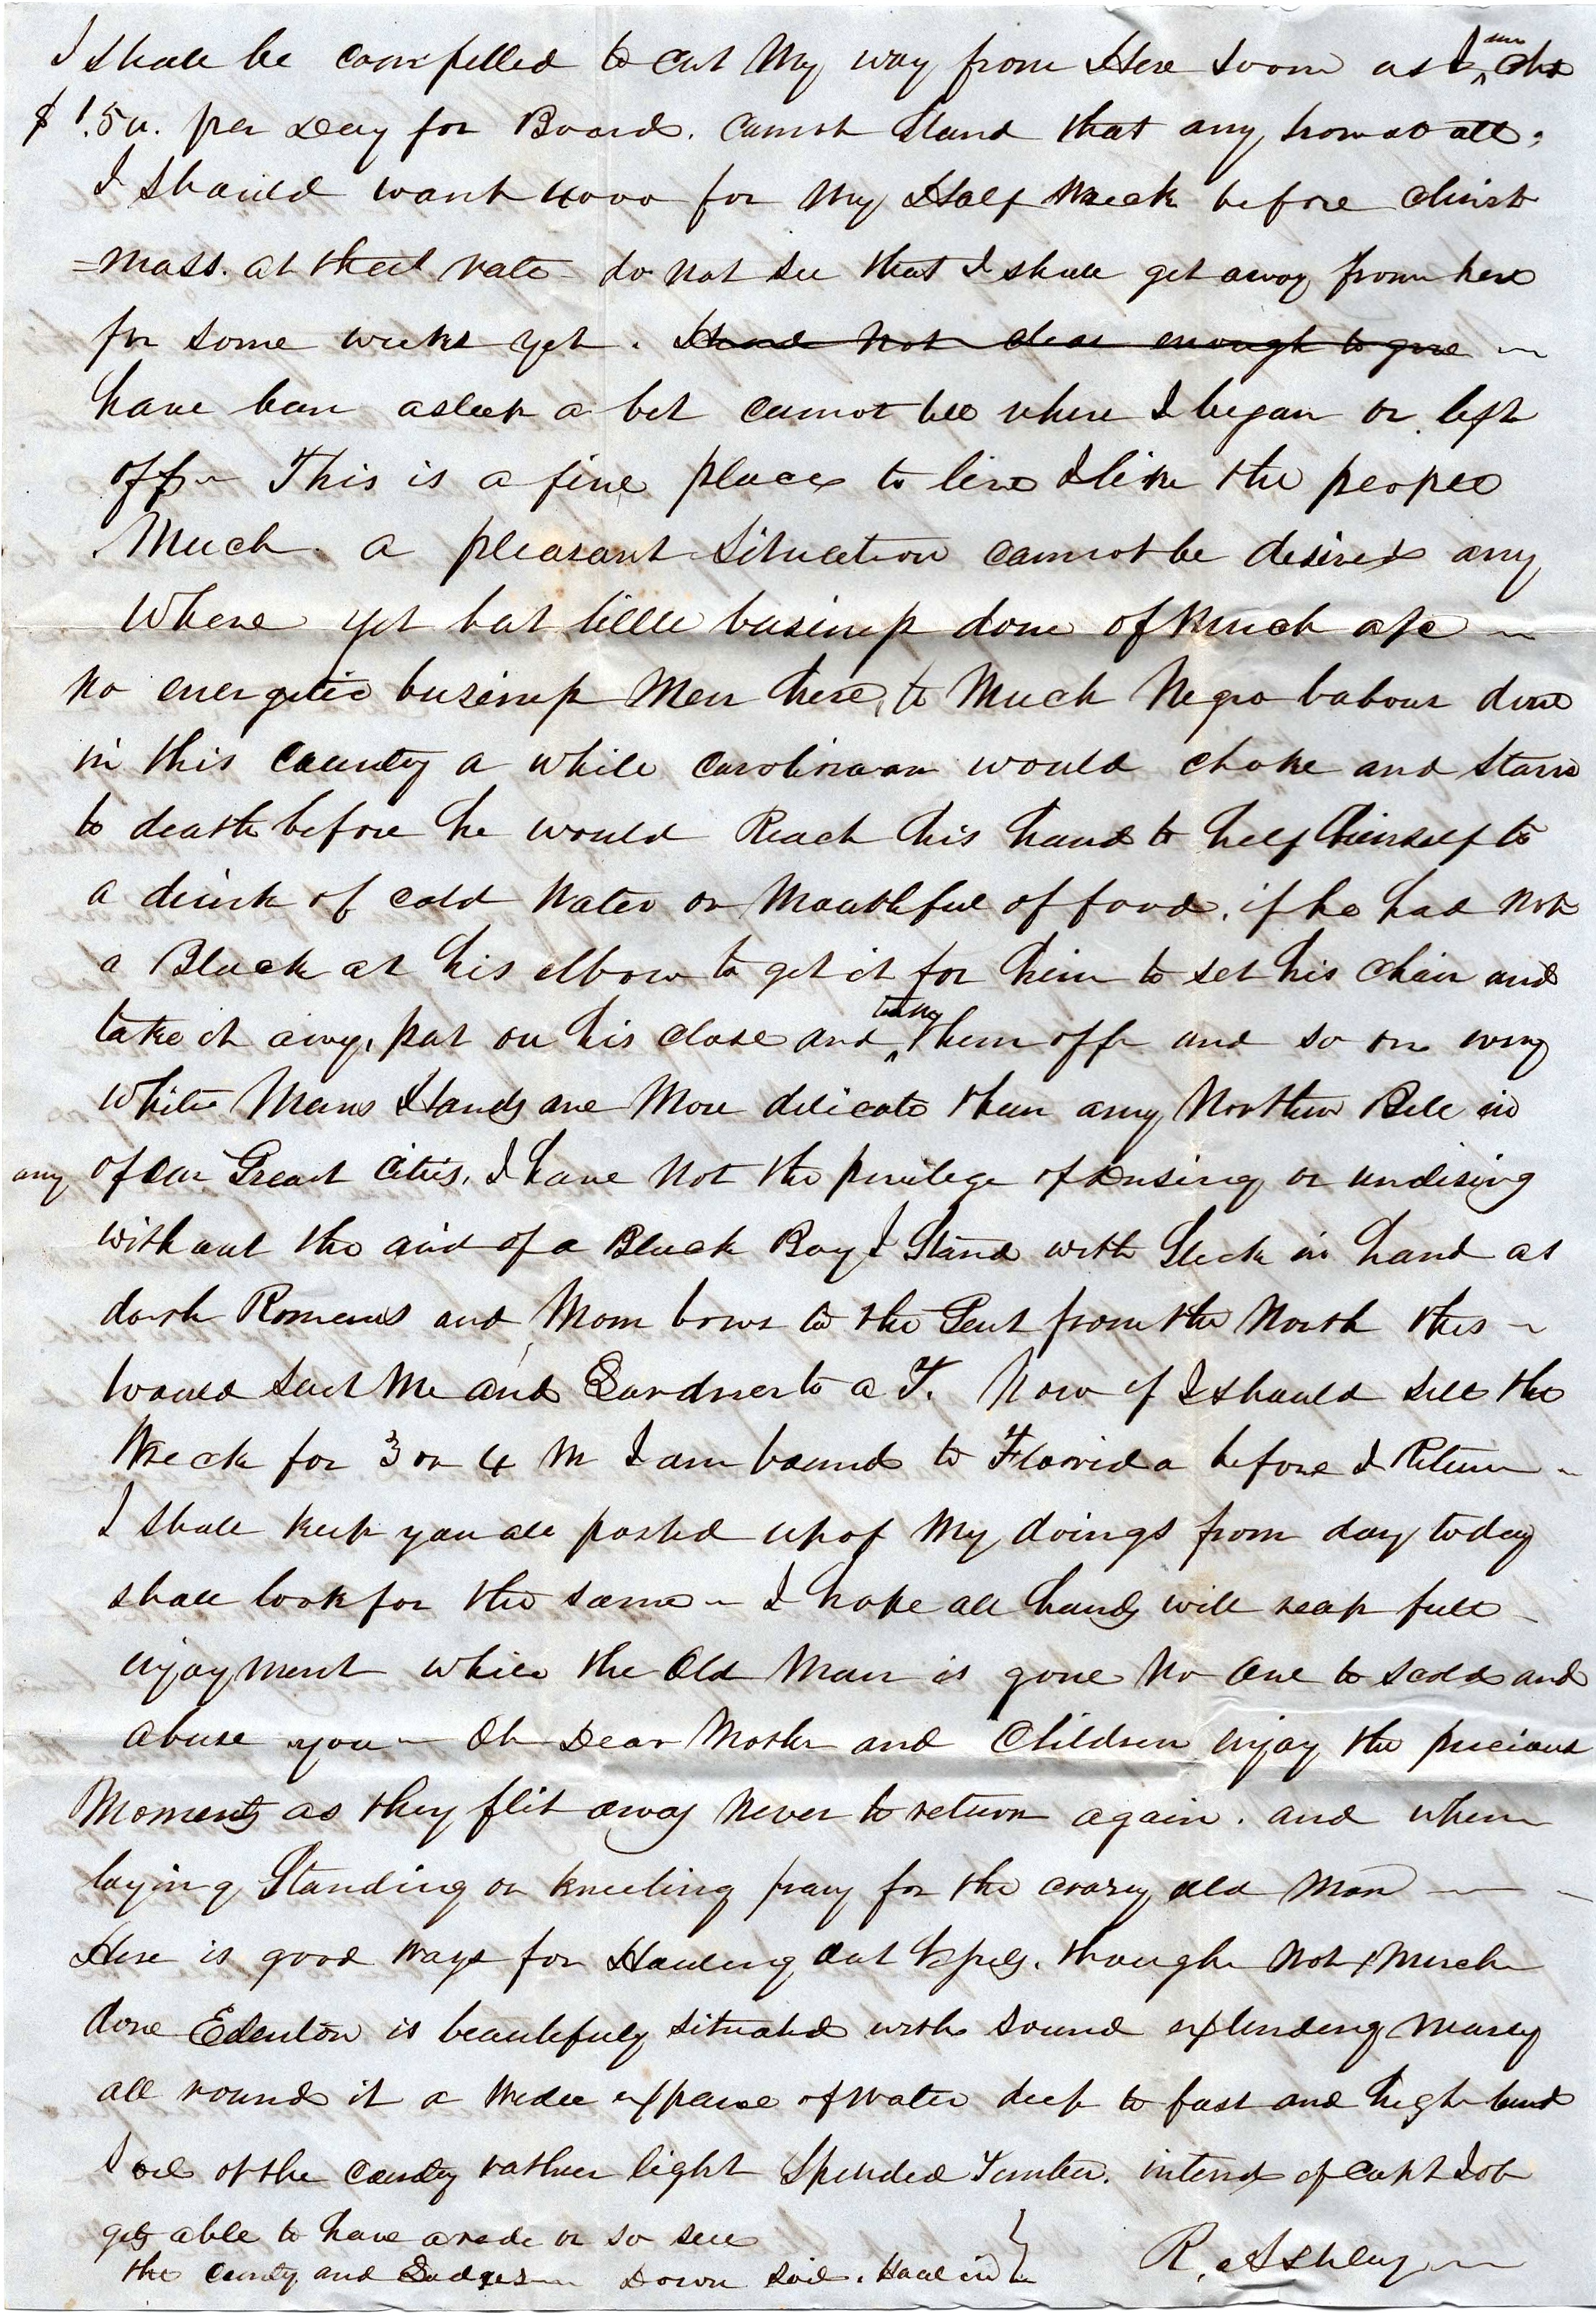 I shall be compelled to cut My way from Here soon as I
$1.50. per Day for Board. cannot stand that any how at all.
I should want 4000 for My Half Wreck before christ
=mass. at that rate do not see that I shall get away from here
for some weeks yet. not dear enough to give
have ben asleep a bit cannot tell where I began or left
off This is a fine place to live I like the people
Much. a pleasant situation cannot be desired any
Where yet but little business done of Much a/c
no energetic business Men here, to Much Negro labour done
in this County a while carolinaan would choke and starve
to death before he would Reach his hand to help himself to
a drink of cold Water or Mouthful of food. if he had not
a Black at his elbow to get it for him to set his chair and
take it away, put on his close and taking them off and so on
White Mans Hands are More delicate than any Northern Bell in
any of our Great Cities. I have Not the privilege of dressing or undising
without the aid of a Black Boy I Stand with Stick in hand as
dark Romeus and Mom bows to the Gent from the North this
would suit Me and Gardner to a T. Now if I should sell the
Wreck for 3 or 4 M I am bound to Florrida before I Return
I shall keep you all posted up of My doings from day to day
shall look for the same I hope all hands will reap full
enjoyment while the Old Man is gone No One to scold and
abuse you Oh Dear Mother and Children enjoy the precious
Moments as they flit away Never to return again. and when
laying Standing or kneeling pray for the crazy old Man
Here is good Ways for Hauling out Vessels. though Not Much
done Edenton is beautifuly situated with sound extending nearly
all round it a wide expance of water deep to fast and high land
Soil of the County rather light Splended Timber. intend if Capt Job
gets able to have a rade or so see
the County and Down Soil. Haul in
R. Ashley